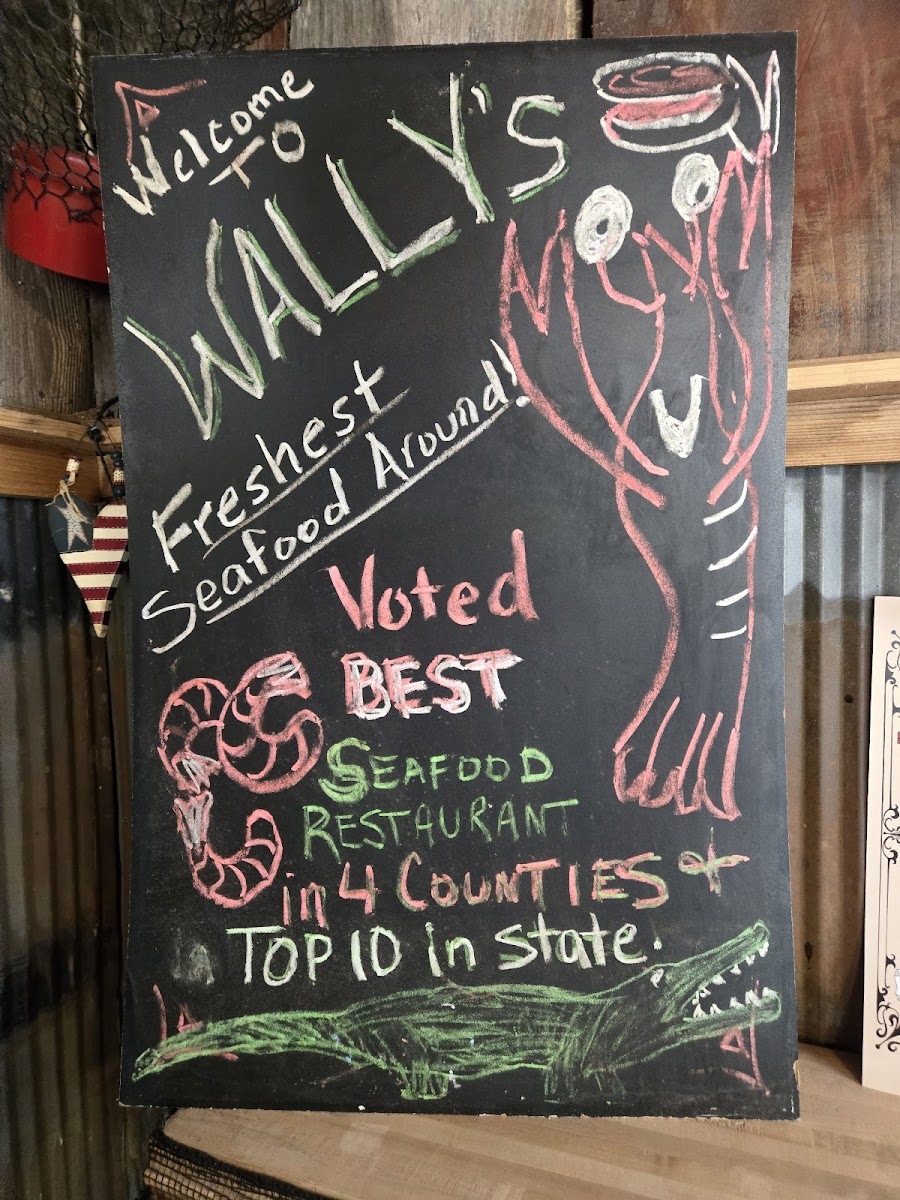 Welcome
TO
WALLY'S
Freshest
Seafood Around!
Voted
BEST
SEAFOOD
RESTAURANT
in 4 COUNTIES &
TOP 10 in state!